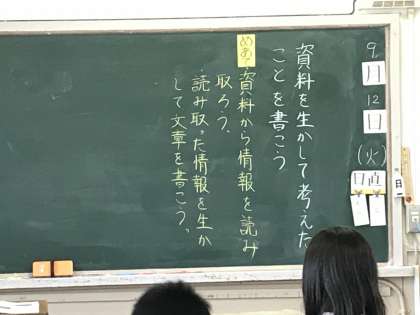 9
月
12
日
(火)
日直
資料を生かして考えた
ことを書こう
めあて
・資料から情報を読み
取ろう。
・読み取った情報を生か
して文章を書こう。